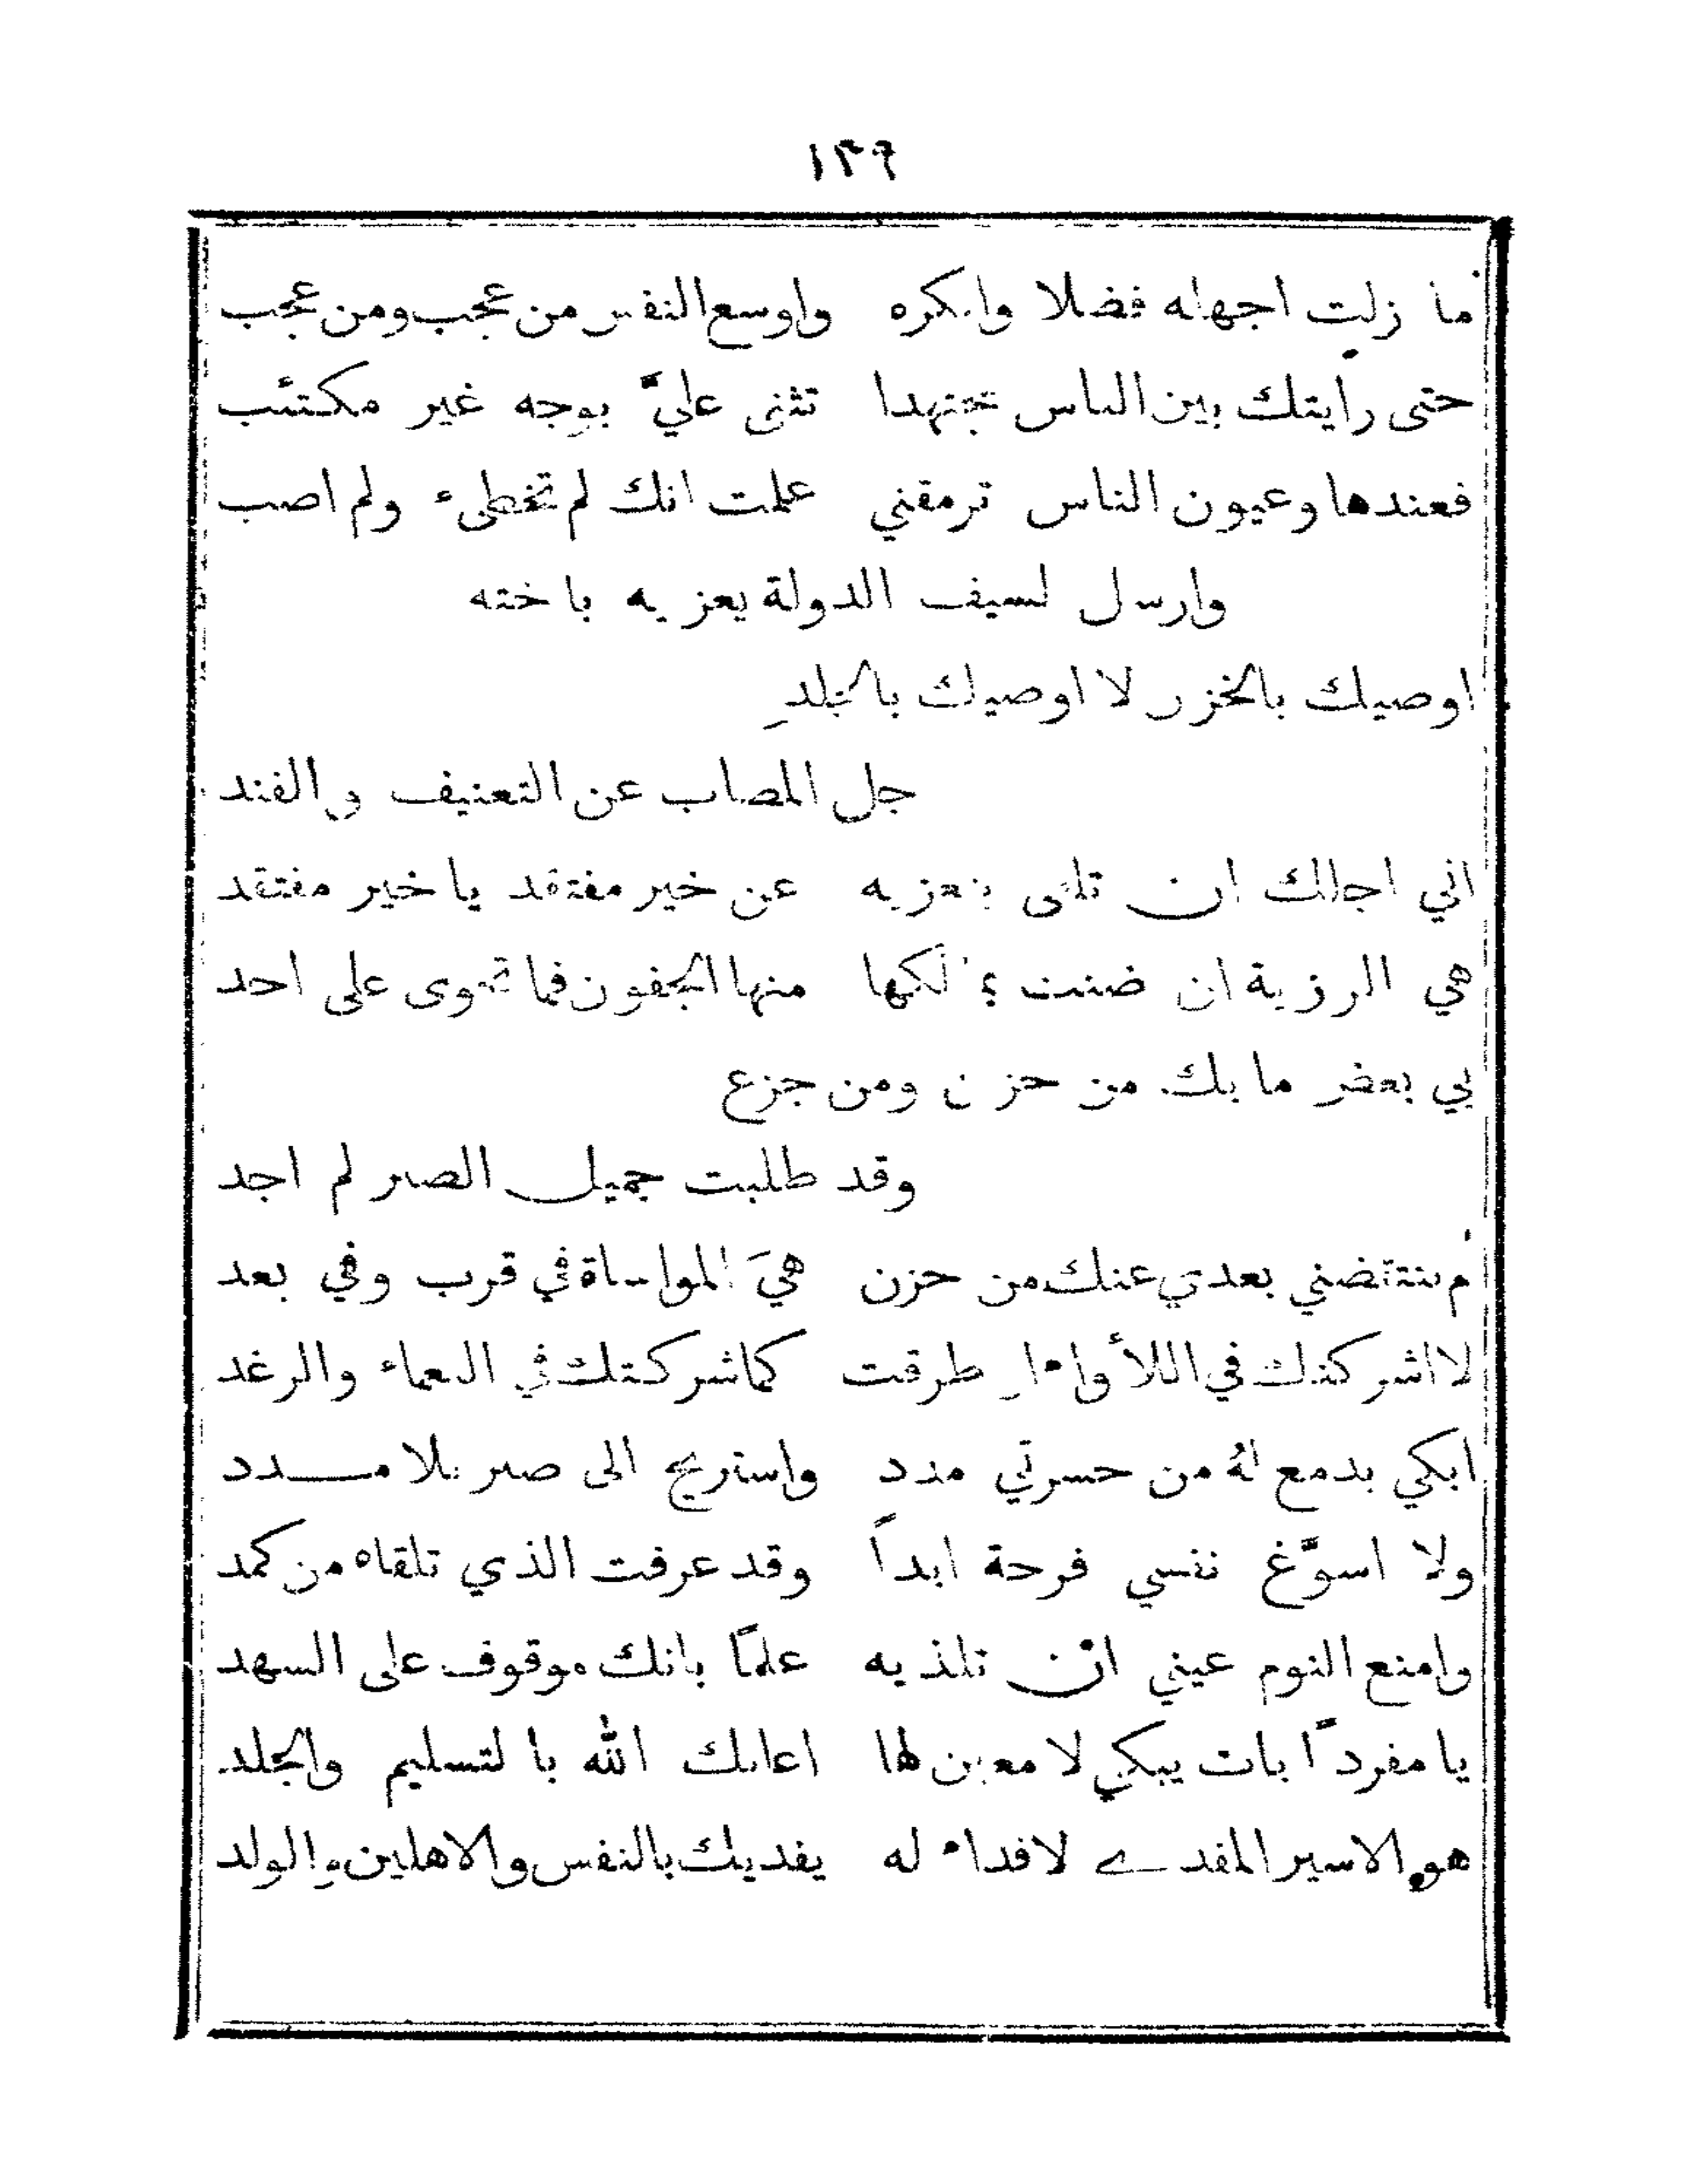 ١٣٩
ما زلت اجهله فضلا وانكره واوسع النفس من عجب ومن عجب
حتى رايتك بين الناس مجتهدا تثنى عليَّ بوجه غير مكتئب
فعندها وعيون الناس ترمقني علمت انك لم تخطىء ولم اصب
وارسل لسيف الدولة يعزيه باخته
اوصيك بالحزن لا اوصيك بالجلدِ
جل المصاب عن التعنيف والفند
اني اجلك ان تلقى بتعزيه عن خير مفتقد يا خير مفتقد
هي الرزية ان ضنت بما ملكها منها الجفون فما تهوى على احد
بي بعض ما بك من حزن ومن جزع
وقد طلبت جميل الصبر لم اجد
لم ينتقضني بعدي عنك من حزن هيَ المواساة في قرب وفي بعد
لا اشركنك في اللأواء ان طرقت كما شركتك في النعماء والرغد
ابكي بدمع لهُ من حسرتي مدد واستريح الى صبر بلا مدد
ولا اسوّغ نفسي فرحة ابداً وقد عرفت الذي تلقاه من كمد
وامنع النوم عيني ان تلذ به علماً بانك موقوف على السهد
يا مفرداً بات يبكي لا معين لها اعانك الله بالتسليم والجلد
هو الاسير المفدى لا فداء له يفديك بالنفس والاهلين والولد